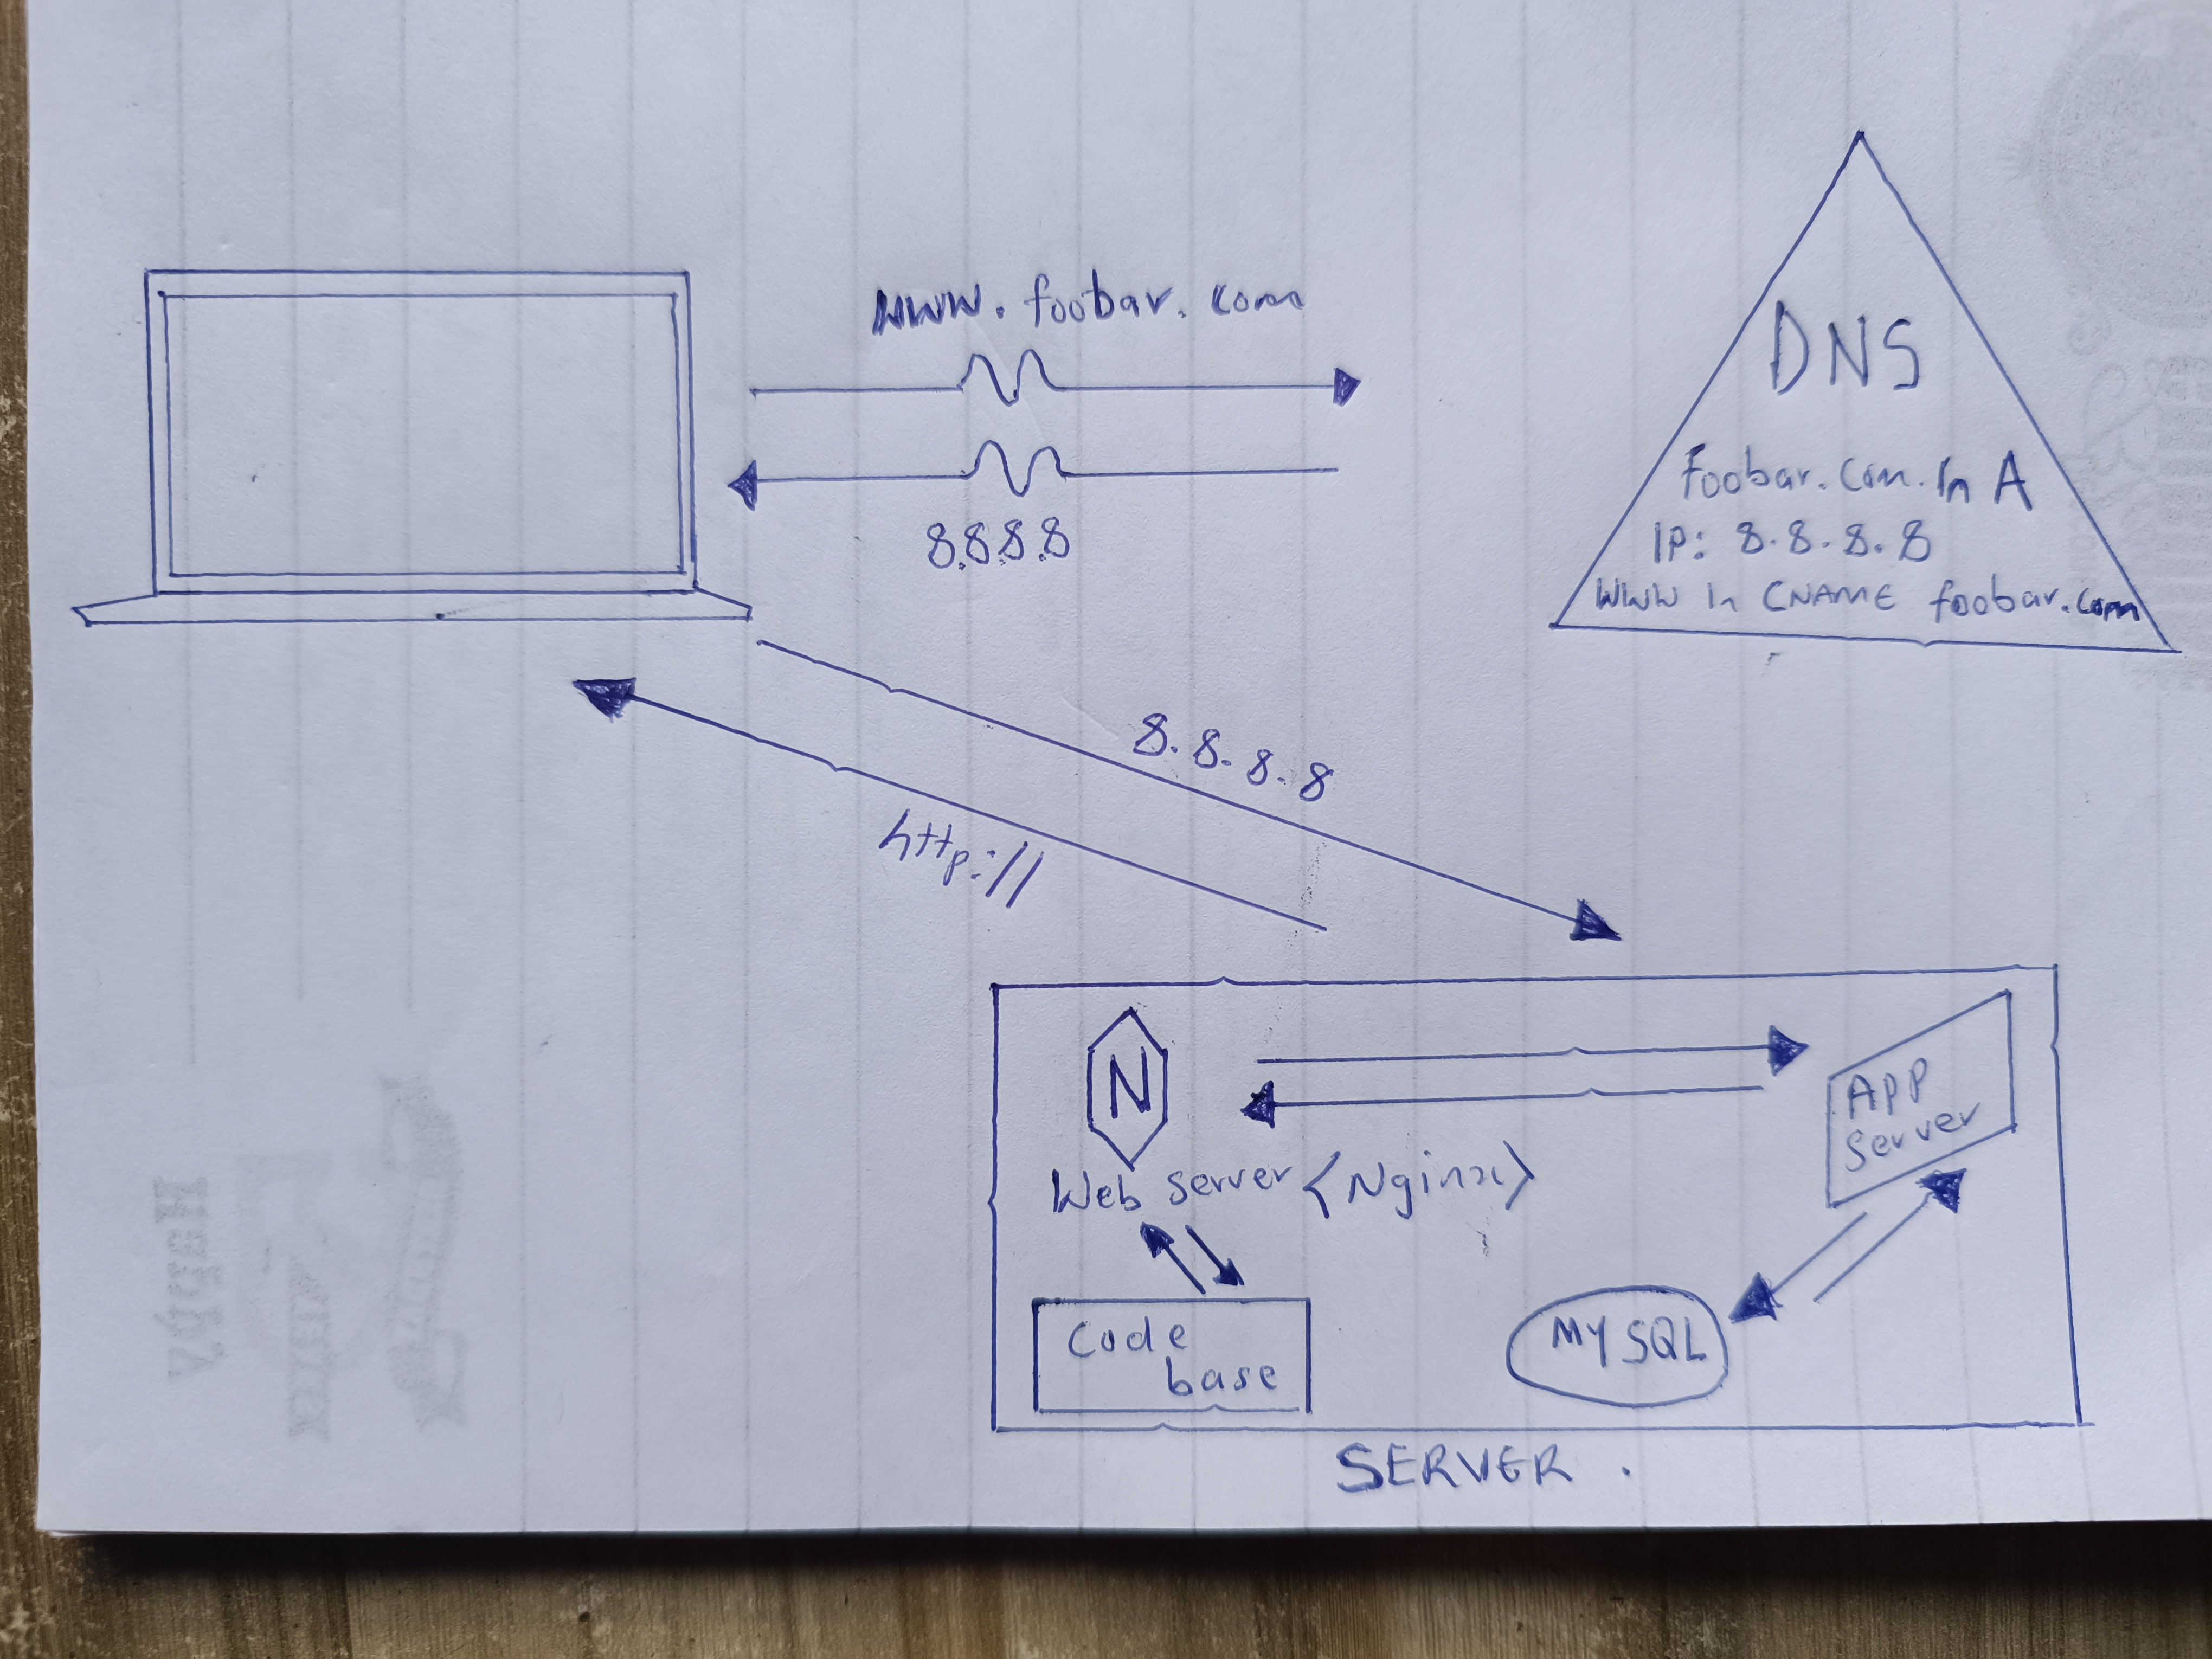 www.foobar.com
8.8.8.8
DNS
Foobar.com. In A
IP: 8.8.8.8
WWW In CNAME foobar.com
8.8.8.8
http://
N
Web server <Nginx>
APP
Server
Code
base
MYSQL
SERVER.